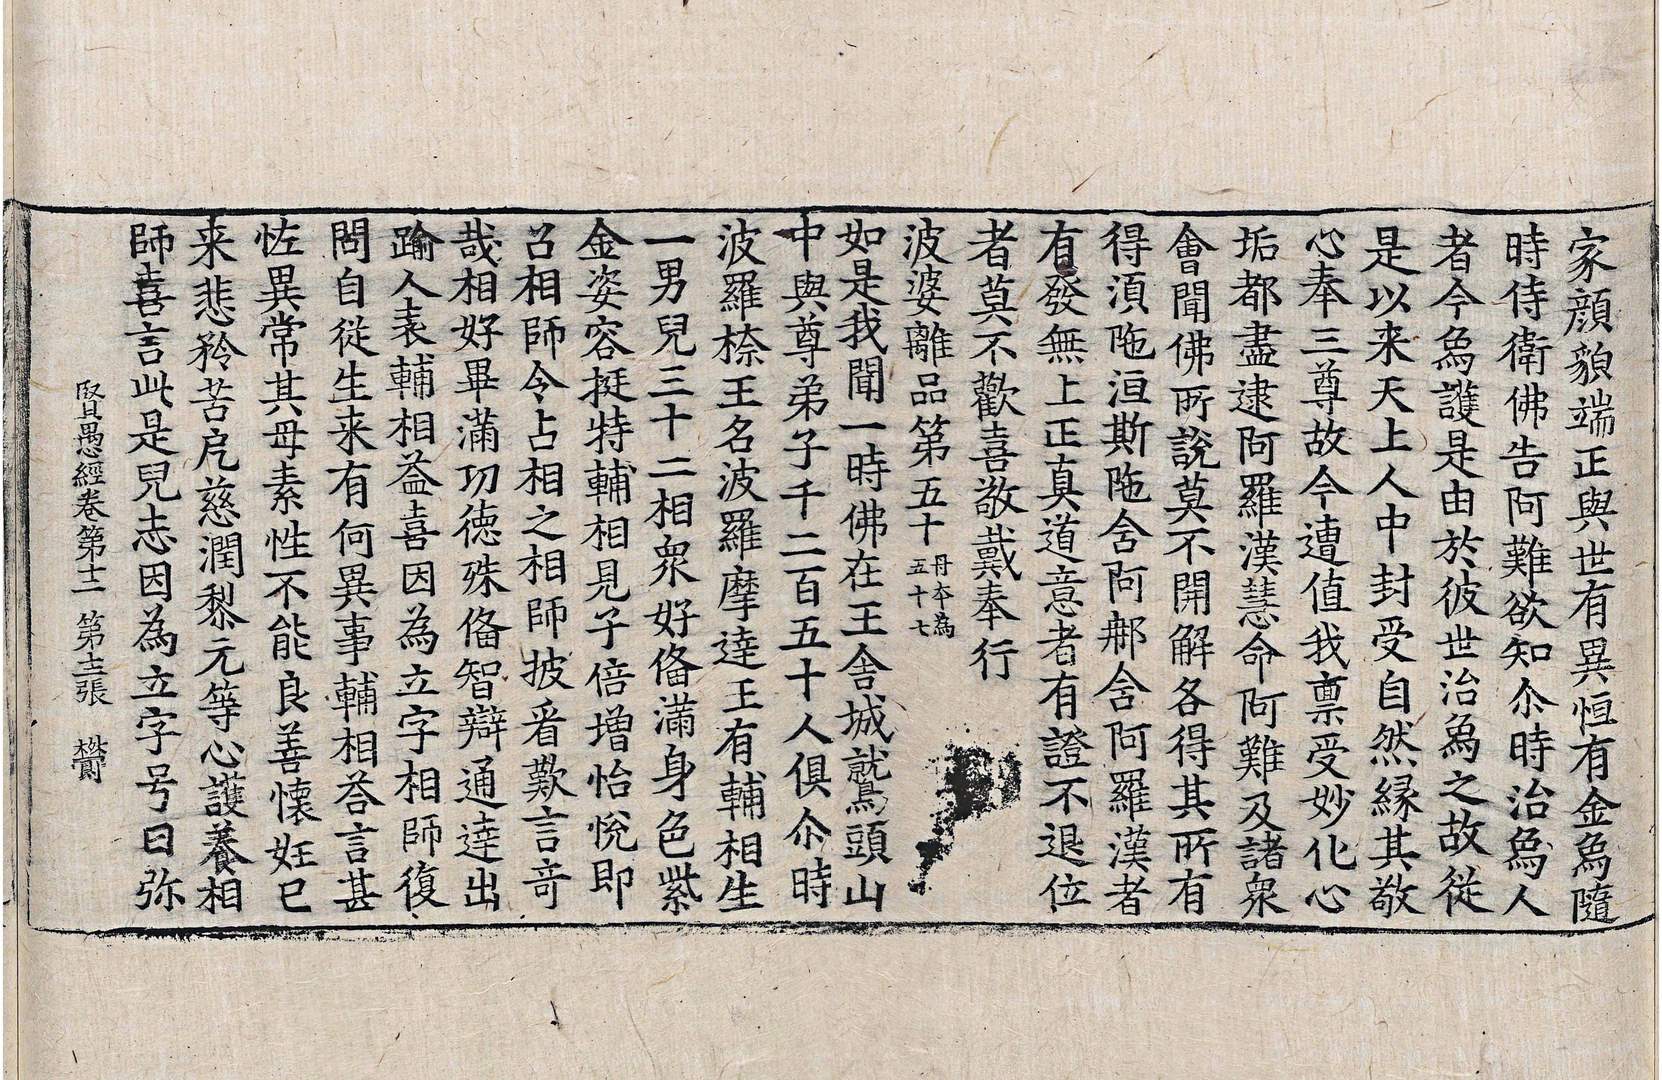 家顔貌端正與世有異恒有金爲隨
時侍衛佛告阿難欲知尒時治爲人
者今爲護是由於彼世治爲之故従
是以来天上人中封受自然縁其敬
心奉三尊故今遭值我禀受妙化心
垢都盡逮阿羅漢慧命阿難及諸衆
會聞佛所說莫不開解各得其所有
得湏陁洹斯陁舍阿𨙻舍阿羅漢者
有發無上正真道意者有證不退位
者莫不歡喜敬戴奉行
波婆離品第五十丹本爲五十七
如是我聞一時佛在王舍城鷲頭山
中與尊弟子千二百五十人俱尒時
波羅㮈王名波羅摩達王有輔相生
一男兒三十二相衆好俻滿身色紫
金姿容挺特輔相見子倍增怡悅即
召相師令占相之相師披看歎言奇
哉相好畢滿功德殊俻智辯通達出
踰人表輔相益喜因為立字相師復
問自従生来有何異事輔相荅言甚
恠異常其母素性不能良善懷妊已
来悲矜苦厄慈潤黎元等心護養相
師喜言此是兒志因為立字号曰弥
賢愚經卷第十二 第十三張 欝